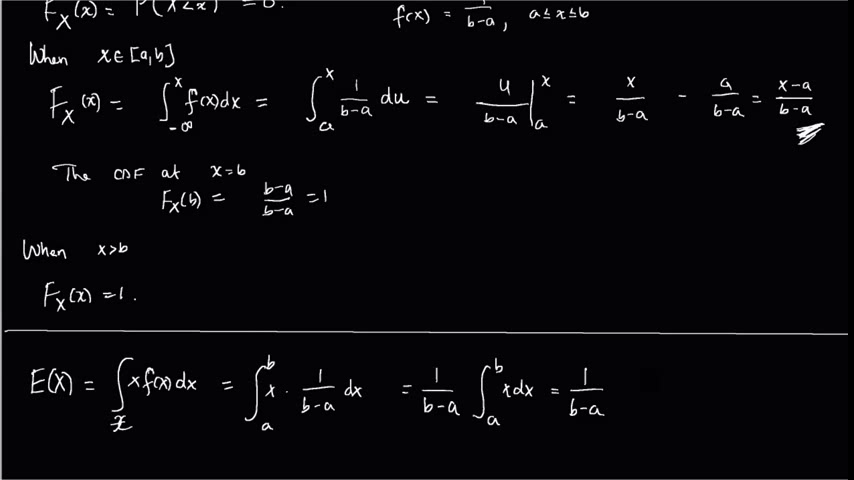 F_X(x) = P(X<x) = 0.
f(x) = 1/(b-a), a≤x≤b
When x∈[a,b]
F_X(x) = ∫_{-∞}^{x} f(x)dx = ∫_a^x 1/(b-a) du = u/(b-a) |_a^x = x/(b-a) - a/(b-a) = (x-a)/(b-a)
The CDF at x=b
F_X(b) = (b-a)/(b-a) = 1
When x>b
F_X(x) = 1.
E(X) = ∫_x x f(x) dx = ∫_a^b x · 1/(b-a) dx = 1/(b-a) ∫_a^b x dx = 1/(b-a)